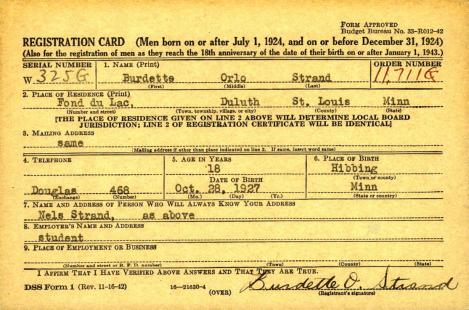 FORM APPROVED
Budget Bureau No. 33-R012-42
REGISTRATION CARD (Men born on or after July 1, 1924, and on or before December 31, 1924)
(Also for the registration of men as they reach the 18th anniversary of the date of their birth on or after January 1, 1943.)
SERIAL NUMBER 1. NAME (Print) ORDER NUMBER
W 325G Burdette Orlo Strand 11,711G
(First) (Middle) (Last)
2. PLACE OF RESIDENCE (Print)
Fond du Lac, Duluth St. Louis Minn
(Number and street) (Town, township, village, or city) (County) (State)
[THE PLACE OF RESIDENCE GIVEN ON LINE 2 ABOVE WILL DETERMINE LOCAL BOARD
JURISDICTION; LINE 2 OF REGISTRATION CERTIFICATE WILL BE IDENTICAL]
3. MAILING ADDRESS
same
(Mailing address if other than place indicated on line 2. If same, insert word same)
4. TELEPHONE 5. AGE IN YEARS 6. PLACE OF BIRTH
18 Hibbing
DATE OF BIRTH (Town or county)
Douglas 468 Oct. 28, 1927 Minn
(Exchange) (Number) (Mo.) (Day) (Yr.) (State or country)
7. NAME AND ADDRESS OF PERSON WHO WILL ALWAYS KNOW YOUR ADDRESS
Nels Strand, as above
8. EMPLOYER'S NAME AND ADDRESS
student
9. PLACE OF EMPLOYMENT OR BUSINESS
(Number and street or R. F. D. number) (Town) (County) (State)
I AFFIRM THAT I HAVE VERIFIED ABOVE ANSWERS AND THAT THEY ARE TRUE.
DSS Form 1 (Rev. 11-16-42) 16-21630-4 (OVER) Burdette O. Strand
(Registrant's signature)